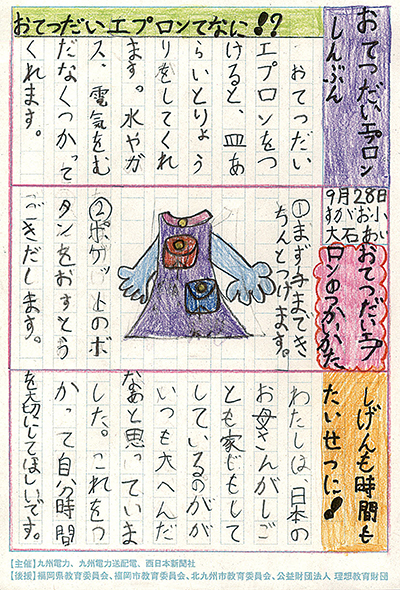 おてつだいエプロン
しんぶん
おてつだいエプロンてなに!?
おてつだい
エプロンをつ
けると、皿あ
らいとりょう
りをしてくれ
ます。水やガ
ス、電気をむ
だなくつかって
くれます。
9月28日
すがお小
大石あい
おてつだいエプ
ロンのつかいかた
①まず手までき
ちんとつけます。
②ポケットのボ
タンをおすとう
ごきだします。
しげんも時間も
たいせつに!
わたしは、日本の
お母さんがしご
とも家じもして
しているのがが
いつも大へんだ
なあと思っていま
した。これをつ
かって自分時間
を大切にしてほしいです。
【主催】九州電力、九州電力送配電、西日本新聞社
【後援】福岡県教育委員会、福岡市教育委員会、北九州市教育委員会、公益財団法人 理想教育財団